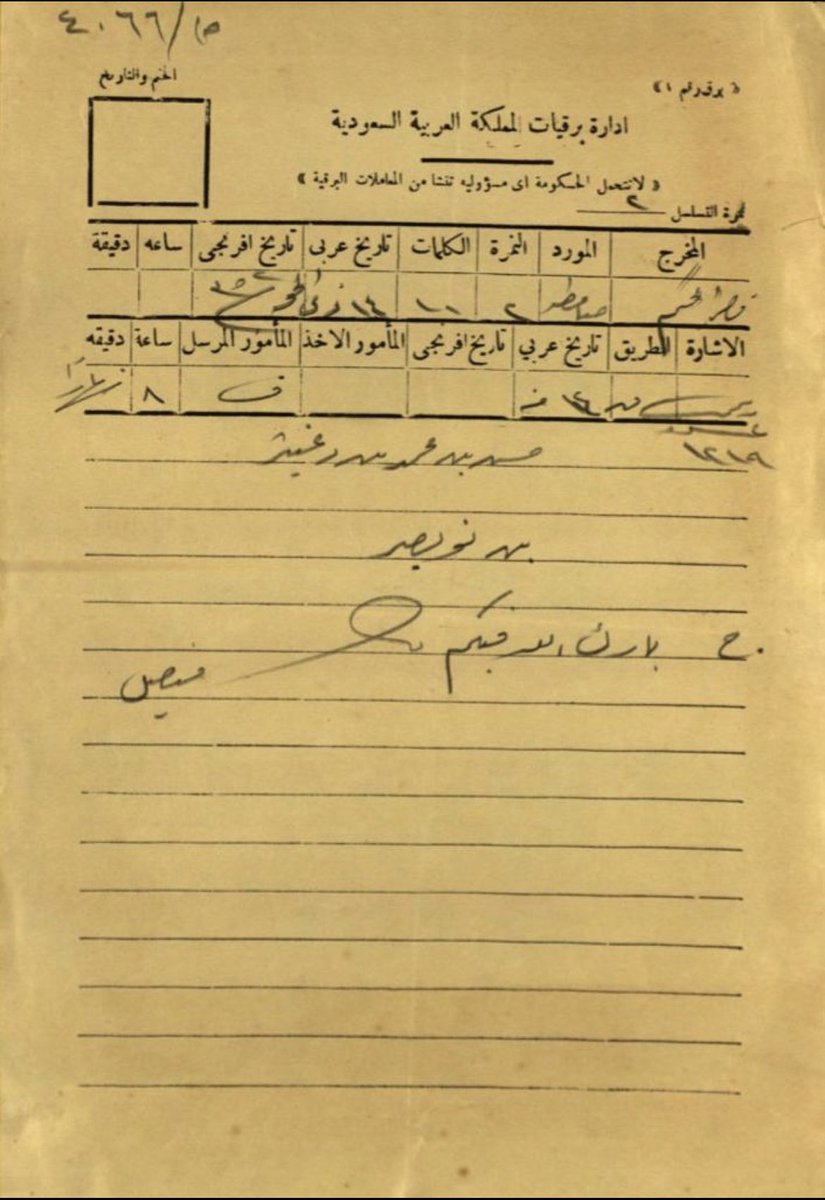 ٤٠٦٦/ص
الختم والتاريخ
« برق رقم ١ »
ادارة برقيات المملكة العربية السعودية
« لا تتحمل الحكومة اى مسؤوليه تنشا من المعاملات البرقية »
نمرة التسلسل ٢
المخرج المورد النمرة الكلمات تاريخ عربى تاريخ افرنجى ساعه دقيقة
٢ ١٠ ١٤
الاشارة الطريق تاريخ عربي تاريخ افرنجى المأمور الاخذ المأمور المرسل ساعة دقيقه
١٤ منه ف ٨ نهارا
١٢١٩
حسن بن محمد بن دغيثر
بن نويصر
ج بارك الله فيكم
فيصل